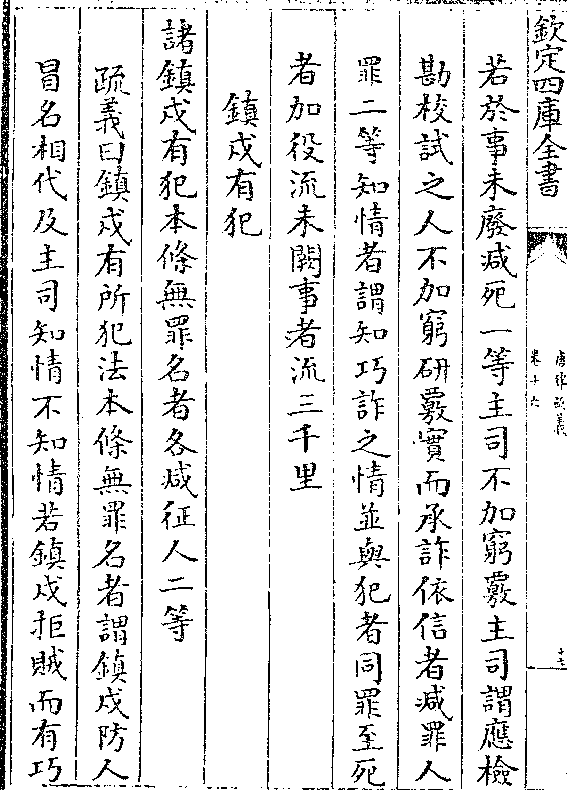 欽定四庫全書
唐律疏義
卷十六
若於事未廢減死一等主司不加窮覈主司謂應檢
勘校試之人不加窮研覈實而承詐依信者減罪人
罪二等知情者謂知巧詐之情並與犯者同罪至死
者加役流未闕事者流三千里
鎮戍有犯
諸鎮戍有犯本條無罪名者各減征人二等
疏義曰鎮戍有所犯法本條無罪名者謂鎮戍防人
冒名相代及主司知情不知情若鎮戍拒賊而有巧